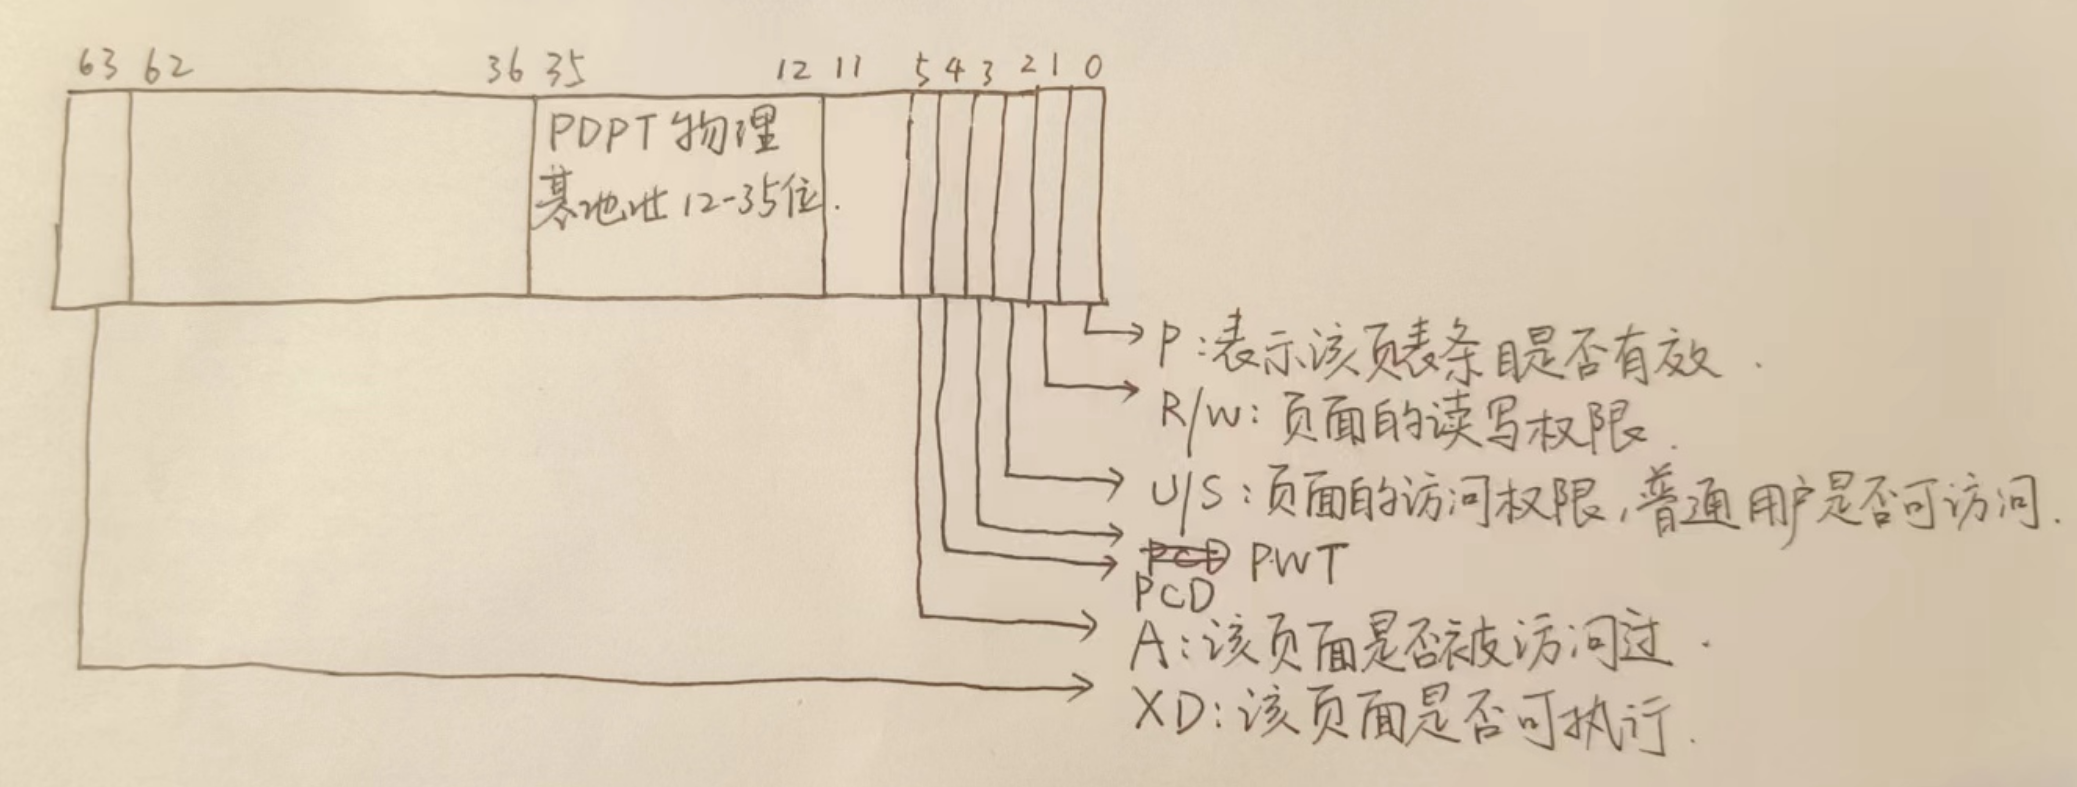 63 62 36 35 12 11 5 4 3 2 1 0
PDPT 物理
基地址 12-35位.
P:表示该页表条目是否有效.
R/W:页面的读写权限.
U/S:页面的访问权限,普通用户是否可访问.
PCD PWT
PCD
A:该页面是否被访问过.
XD:该页面是否可执行.